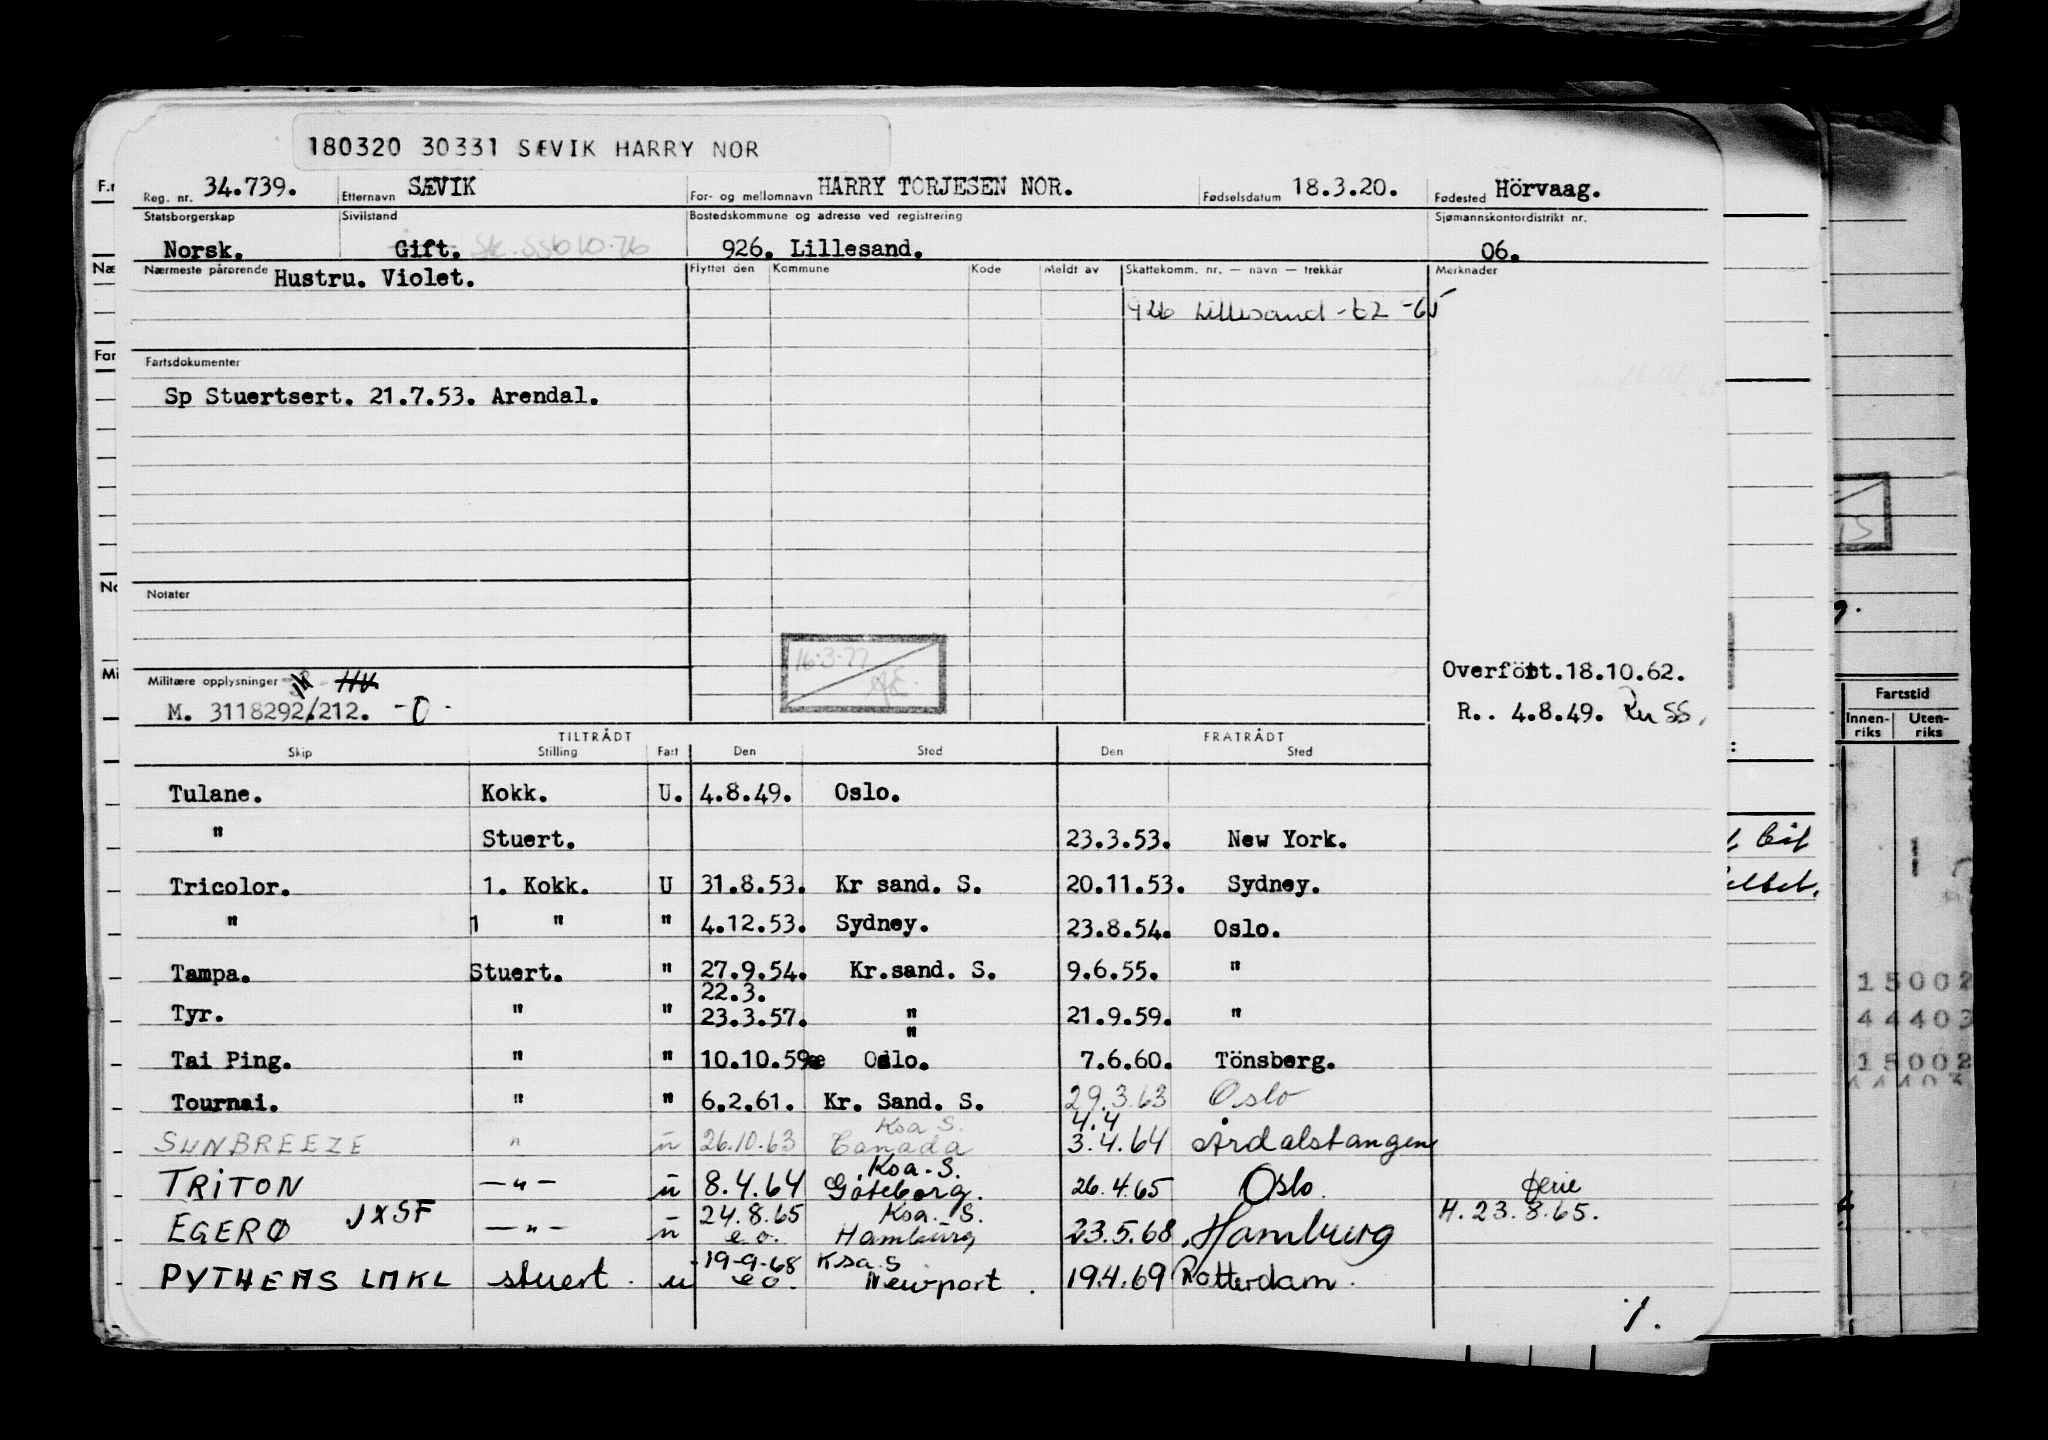 180320 30331 SÆVIK HARRY NOR
Reg. nr. 34.739. Etternavn SÆVIK For- og mellomnavn HARRY TORJESEN NOR. Fødselsdatum 18.3.20. Fødested Hörvaag.
Statsborgerskap Sivilstand Bostedskommune og adresse ved registrering Sjømannskontordistrikt nr.
Norsk. Gift. 926. Lillesand. 06.
Nærmeste pårørende Hustru. Violet. Flyttet den Kommune Kode Meldt av Skattekomm. nr. — navn — trekkår Merknader
926 Lillesand -62 -65
Fartsdokumenter
Sp Stuertsert. 21.7.53. Arendal.
Notater
16.3.77
Overfört.18.10.62.
Militære opplysninger HV
M. 3118292/212. -0-
R.. 4.8.49.
TILTRÅDT FRATRÅDT
Skip Stilling Fart Den Sted Den Sted
Tulane. Kokk. U. 4.8.49. Oslo.
" Stuert. 23.3.53. New York.
Tricolor. 1. Kokk. U 31.8.53. Kr sand. S. 20.11.53. Sydney.
" 1 " " 4.12.53. Sydney. 23.8.54. Oslo.
Tampa. Stuert. " 27.9.54. Kr.sand. S. 9.6.55. "
22.3.
Tyr. " " 23.3.57. " 21.9.59. "
"
Tai Ping. " " 10.10.59 Oslo. 7.6.60. Tönsberg.
Tournai. " " 6.2.61. Kr. Sand. S. 29.3.63 Oslo
Ksa S. 4.4
SUNBREEZE " u 26.10.63 Canada 3.4.64 Årdalstangen
Ksa. S.
TRITON —"— u 8.4.64 Göteborg. 26.4.65 Oslo. ferie
24.8.65 Ksa. S. H. 23.8.65.
EGERØ JXSF —"— u e.o. Hamburg 23.5.68 Hamburg
19-9-68 Ksa. S
PYTHEAS LMKL stuert. u eo. Newport. 19.4.69 Rotterdam.
1.
Fartstid
Innen-riks Uten-riks
15002
44403
15002